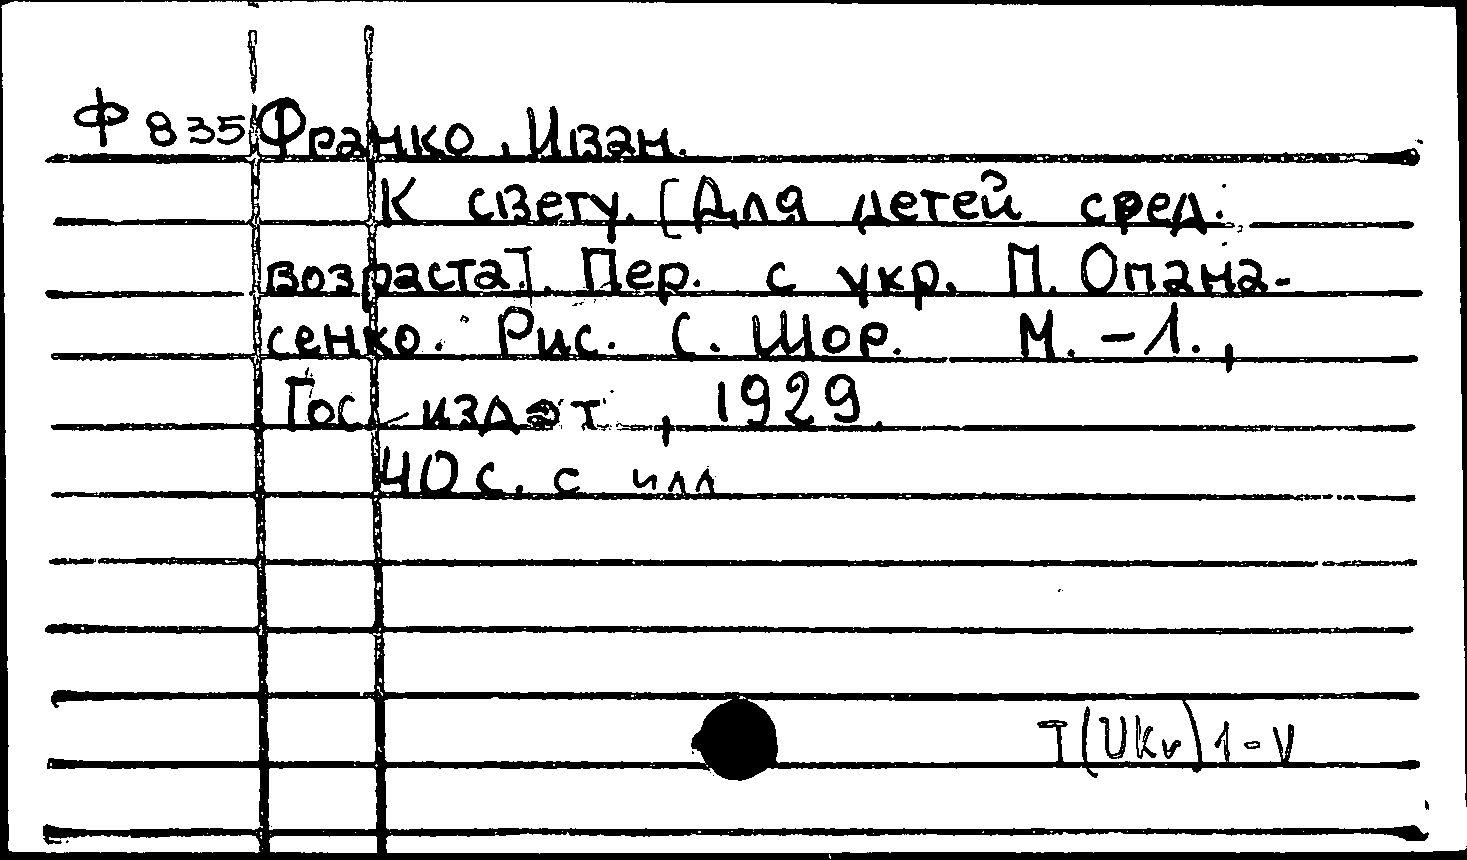 Ф 835 Франко, Иван.
К свету. [Для детей сред.
возраста]. Пер. с укр. П. Опана-
сенко. Рис. С. Шор. М. - Л.,
Гос. издат, 1929.
40 с. с илл
T(Ukr)1-V